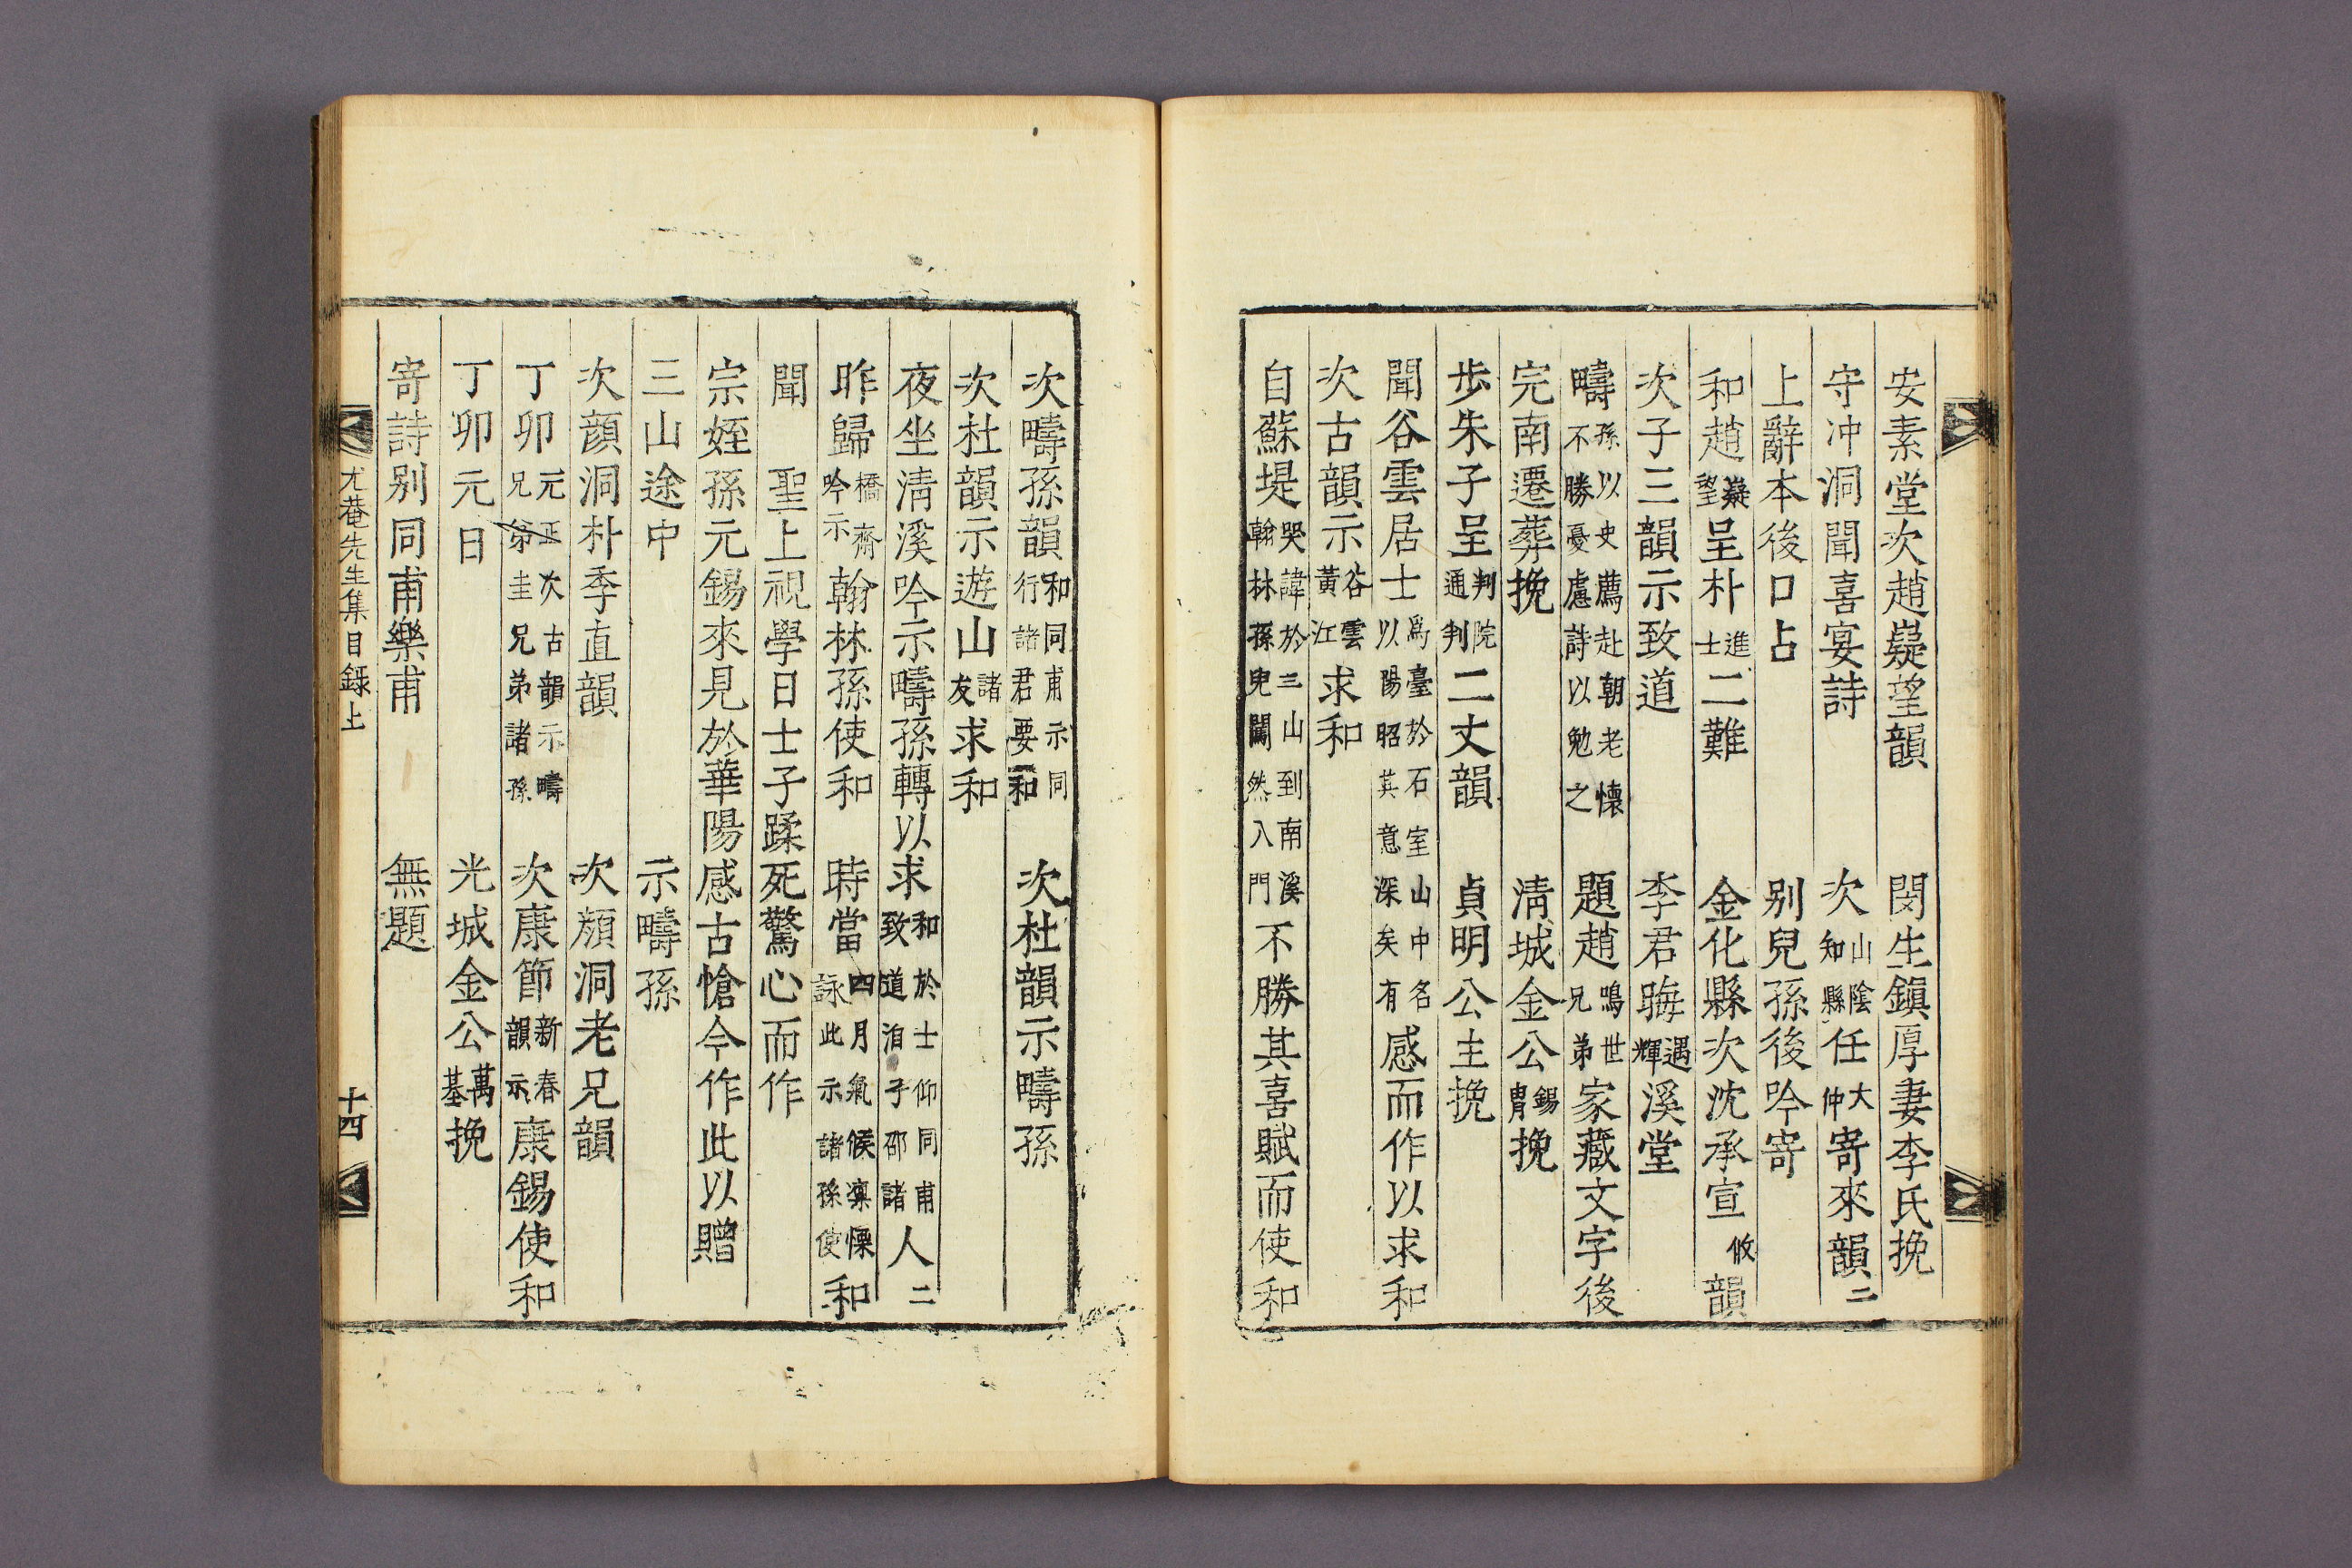 安素堂次趙嶷望韻　閔生鎭厚妻李氏挽
守冲洞聞喜宴詩　次山陰知縣任大仲寄來韻二
上辭本後口占　别兒孫後吟寄
和趙嶷望呈朴進士二難　金化縣次沈承宣攸韻
次子三韻示致道　李君晦遇輝溪堂
疇孫以史薦赴朝老懐不勝憂慮詩以勉之　題趙鳴世兄弟家藏文字後
完南遷葬挽　淸城金公錫胄挽
歩朱子呈判院通判二丈韻　貞明公主挽
聞谷雲居士爲臺於石室山中名以陽昭其意深矣有感而作以求和
次古韻示谷雲黃江求和
自蘇堤哭諱於三山到南溪翰林孫兒闖然入門不勝其喜賦而使和
次疇孫韻和同甫示同行諸君要和　次杜韻示疇孫
次杜韻示遊山諸友求和
夜坐淸溪吟示疇孫轉以求和於士仰同甫致道洎子邵諸人二
昨歸橋齋吟示翰林孫使和　時當四月氣候凜慄詠此示諸孫使和
聞　聖上視學日士子蹂死驚心而作
宗姪孫元錫來見於華陽感古愴今作此以贈
三山途中　示疇孫
次顔洞朴季直韻　次顔洞老兄韻
丁卯元正次古韻示疇兄弟圭兄弟諸孫　次康節新春韻示康錫使和
丁卯元日　光城金公萬基挽
寄詩别同甫樂甫　無題
尤菴先生集目錄上　十四